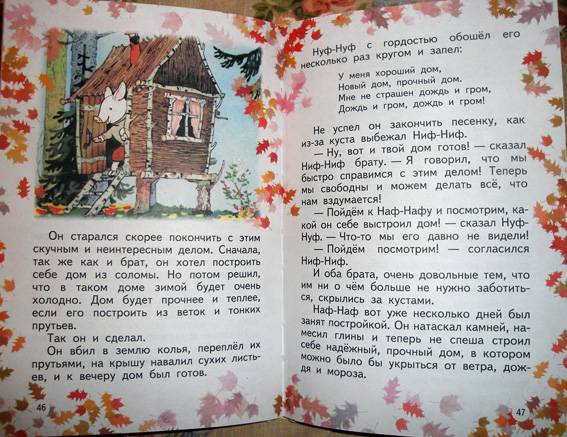 Он старался скорее покончить с этим
скучным и неинтересным делом. Сначала,
так же как и брат, он хотел построить
себе дом из соломы. Но потом решил,
что в таком доме зимой будет очень
холодно. Дом будет прочнее и теплее,
если его построить из веток и тонких
прутьев.
Так он и сделал.
Он вбил в землю колья, переплёл их
прутьями, на крышу навалил сухих листь-
ев, и к вечеру дом был готов.
46
Нуф-Нуф с гордостью обошёл его
несколько раз кругом и запел:
У меня хороший дом,
Новый дом, прочный дом.
Мне не страшен дождь и гром,
Дождь и гром, дождь и гром!
Не успел он закончить песенку, как
из-за куста выбежал Ниф-Ниф.
— Ну, вот и твой дом готов! — сказал
Ниф-Ниф брату. — Я говорил, что мы
быстро справимся с этим делом! Теперь
мы свободны и можем делать всё, что
нам вздумается!
— Пойдём к Наф-Нафу и посмотрим, ка-
кой он себе выстроил дом! — сказал Нуф-
Нуф. — Что-то мы его давно не видели!
— Пойдём посмотрим! — согласился
Ниф-Ниф.
И оба брата, очень довольные тем, что
им ни о чём больше не нужно заботить-
ся, скрылись за кустами.
Наф-Наф вот уже несколько дней был
занят постройкой. Он натаскал камней, на-
месил глины и теперь не спеша строил
себе надёжный, прочный дом, в котором
можно было бы укрыться от ветра, дож-
дя и мороза.
47